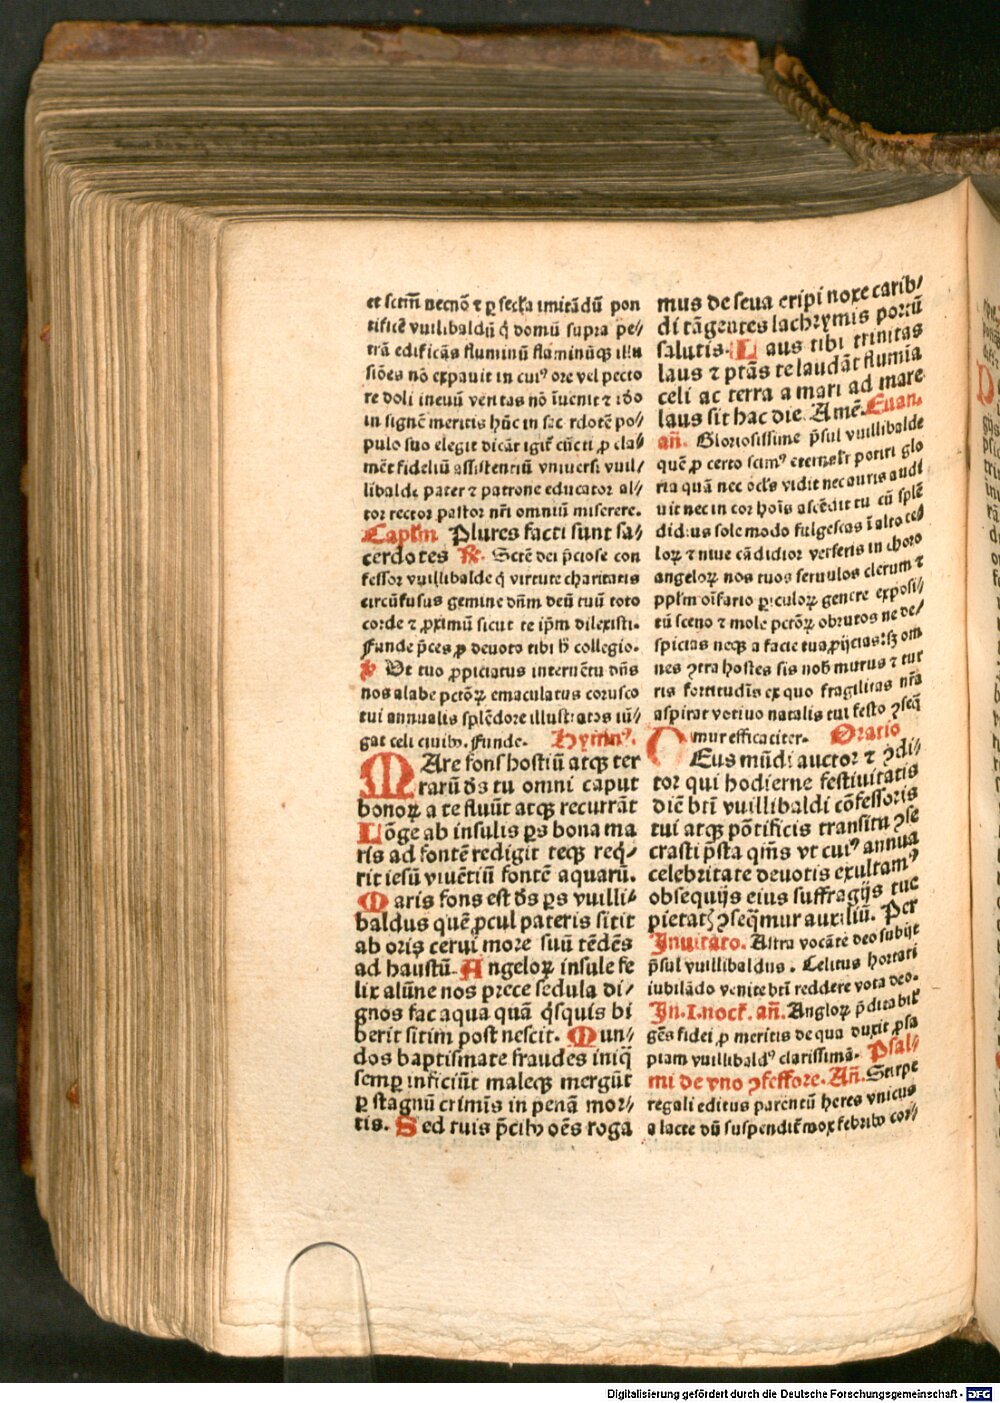 et sctm̄ necnō ⁊ ꝑ secła imitādū pon
tificē vuillibaldū q̇ domū supra pe⸗
trā edificās fluminū flaminūqꝫ illu
siōes nō expauit in cuiꝰ ore vel pecto
re doli ineuū veritas nō īuenit ⁊ iō
in signē meritis hūc in sac rdotē po⸗
pulo suo elegit dicāt igiť cūcti ꝓ cla⸗
mēt fideliū assistentiū vniuersi vuil⸗
libalde pater ⁊ patrone educator al⸗
tor rector pastor nr̄i omniū miserere.
Caplm Plures facti sunt sa⸗
cerdotes ℟. Sctē dei p̄ciose con
fessor vuillibalde q̇ virtute charitatis
circūfusus gemine dn̄m deū tuū toto
corde ⁊ ꝓximū sicut te ip̄m dilexisti.
Funde p̄ces ꝓ deuoto tibi ħ collegio.
℣ Vt tuo ꝓpiciatus interuētu dn̄s
nos a labe pctōꝝ emaculatus corusco
tui annualis splēdore illustratos iū⸗
gat celi ciuibꝫ. Funde. Hymnꝰ.
MAre fons hostiū atqꝫ ter
rarū d̄s tu omni caput
bonoꝝ a te fluūt atqꝫ recurrāt
Lōge ab insulis ꝑs bona ma
ris ad fontē redigit teqꝫ req̇⸗
rit iesū viuētiū fontē aquarū.
Maris fons est d̄s ꝑs vuilli⸗
baldus quē ꝓcul pateris sitit
ab oris cerui more suū tēdēs
ad haustū. Angeloꝝ insule fe
lix alūne nos prece sedula di⸗
gnos fac aqua quā q̇squis bi
berit sitim post nescit. Mun⸗
dos baptismate fraudes iniq̄
semꝑ inficiūt maleqꝫ mergūt
ꝑ stagnū crimīs in penā mor⸗
tis. Sed tuis p̄cibꝫ oēs roga
mus de seua eripi noxe carib⸗
di tāgentes lachrymis portū
salutis. Laus tibi trinitas
laus ⁊ ptās te laudāt flumīa
celi ac terra a mari ad mare
laus sit hac die. Amē. Euan.
an̄. Gloriosissime p̄sul vuillibalde
quē ꝓ certo scimꝰ eternalr̄ potiri glo
ria quā nec ocłs vidit nec auris audi
uit nec in cor hoīs ascēdit tu cū splē
didius sole modo fulgescas ī alto ce⸗
loꝝ ⁊ niue cādidior verseris in choro
angeloꝝ nos tuos seruulos clerum ⁊
pplm̄ oīfario ꝑiculoꝝ genere exposi⸗
tū sceno ⁊ mole pctōꝝ obrutos ne de⸗
spicias neqꝫ a facie tua ꝓijcias: sꝫ om
nes ꝯtra hostes sis nob̄ murus ⁊ tur
ris fortitudīs ex quo fragilitas nr̄a
aspirat votiuo natalis tui festo ꝯseq̄
mur efficaciter. Oratio
DEus mūdi auctor ⁊ ꝯdi⸗
tor qui hodierne festiuitatis
diē btī vuillibaldi cōfessoris
tui atqꝫ pōtificis transitu ꝯse
crasti p̄sta qm̄s vt cuiꝰ annua
celebritate deuotis exultamꝰ
obsequijs eius suffragijs tue
pietatꝭ ꝯseq̄mur auxiliū. Per
Inuitato. Astra vocāte deo subijt
p̄sul vuillibaldus. Celitus hortati
iubilādo venite btī reddere vota deo.
In .I. nocť. an̄. Angloꝝ p̄dita bis
gēs fidei ꝓ meritis de qua duxit ꝓsa
piam vuillibaldꝰ clarissimā. Psal⸗
mi de vno ꝯfessore. An̄. Stirpe
regali editus parentū heres vnicus
a lacte dū suspendiť mox febribꝫ cor⸗
Digitalisierung gefördert durch die Deutsche Forschungsgemeinschaft - DFG